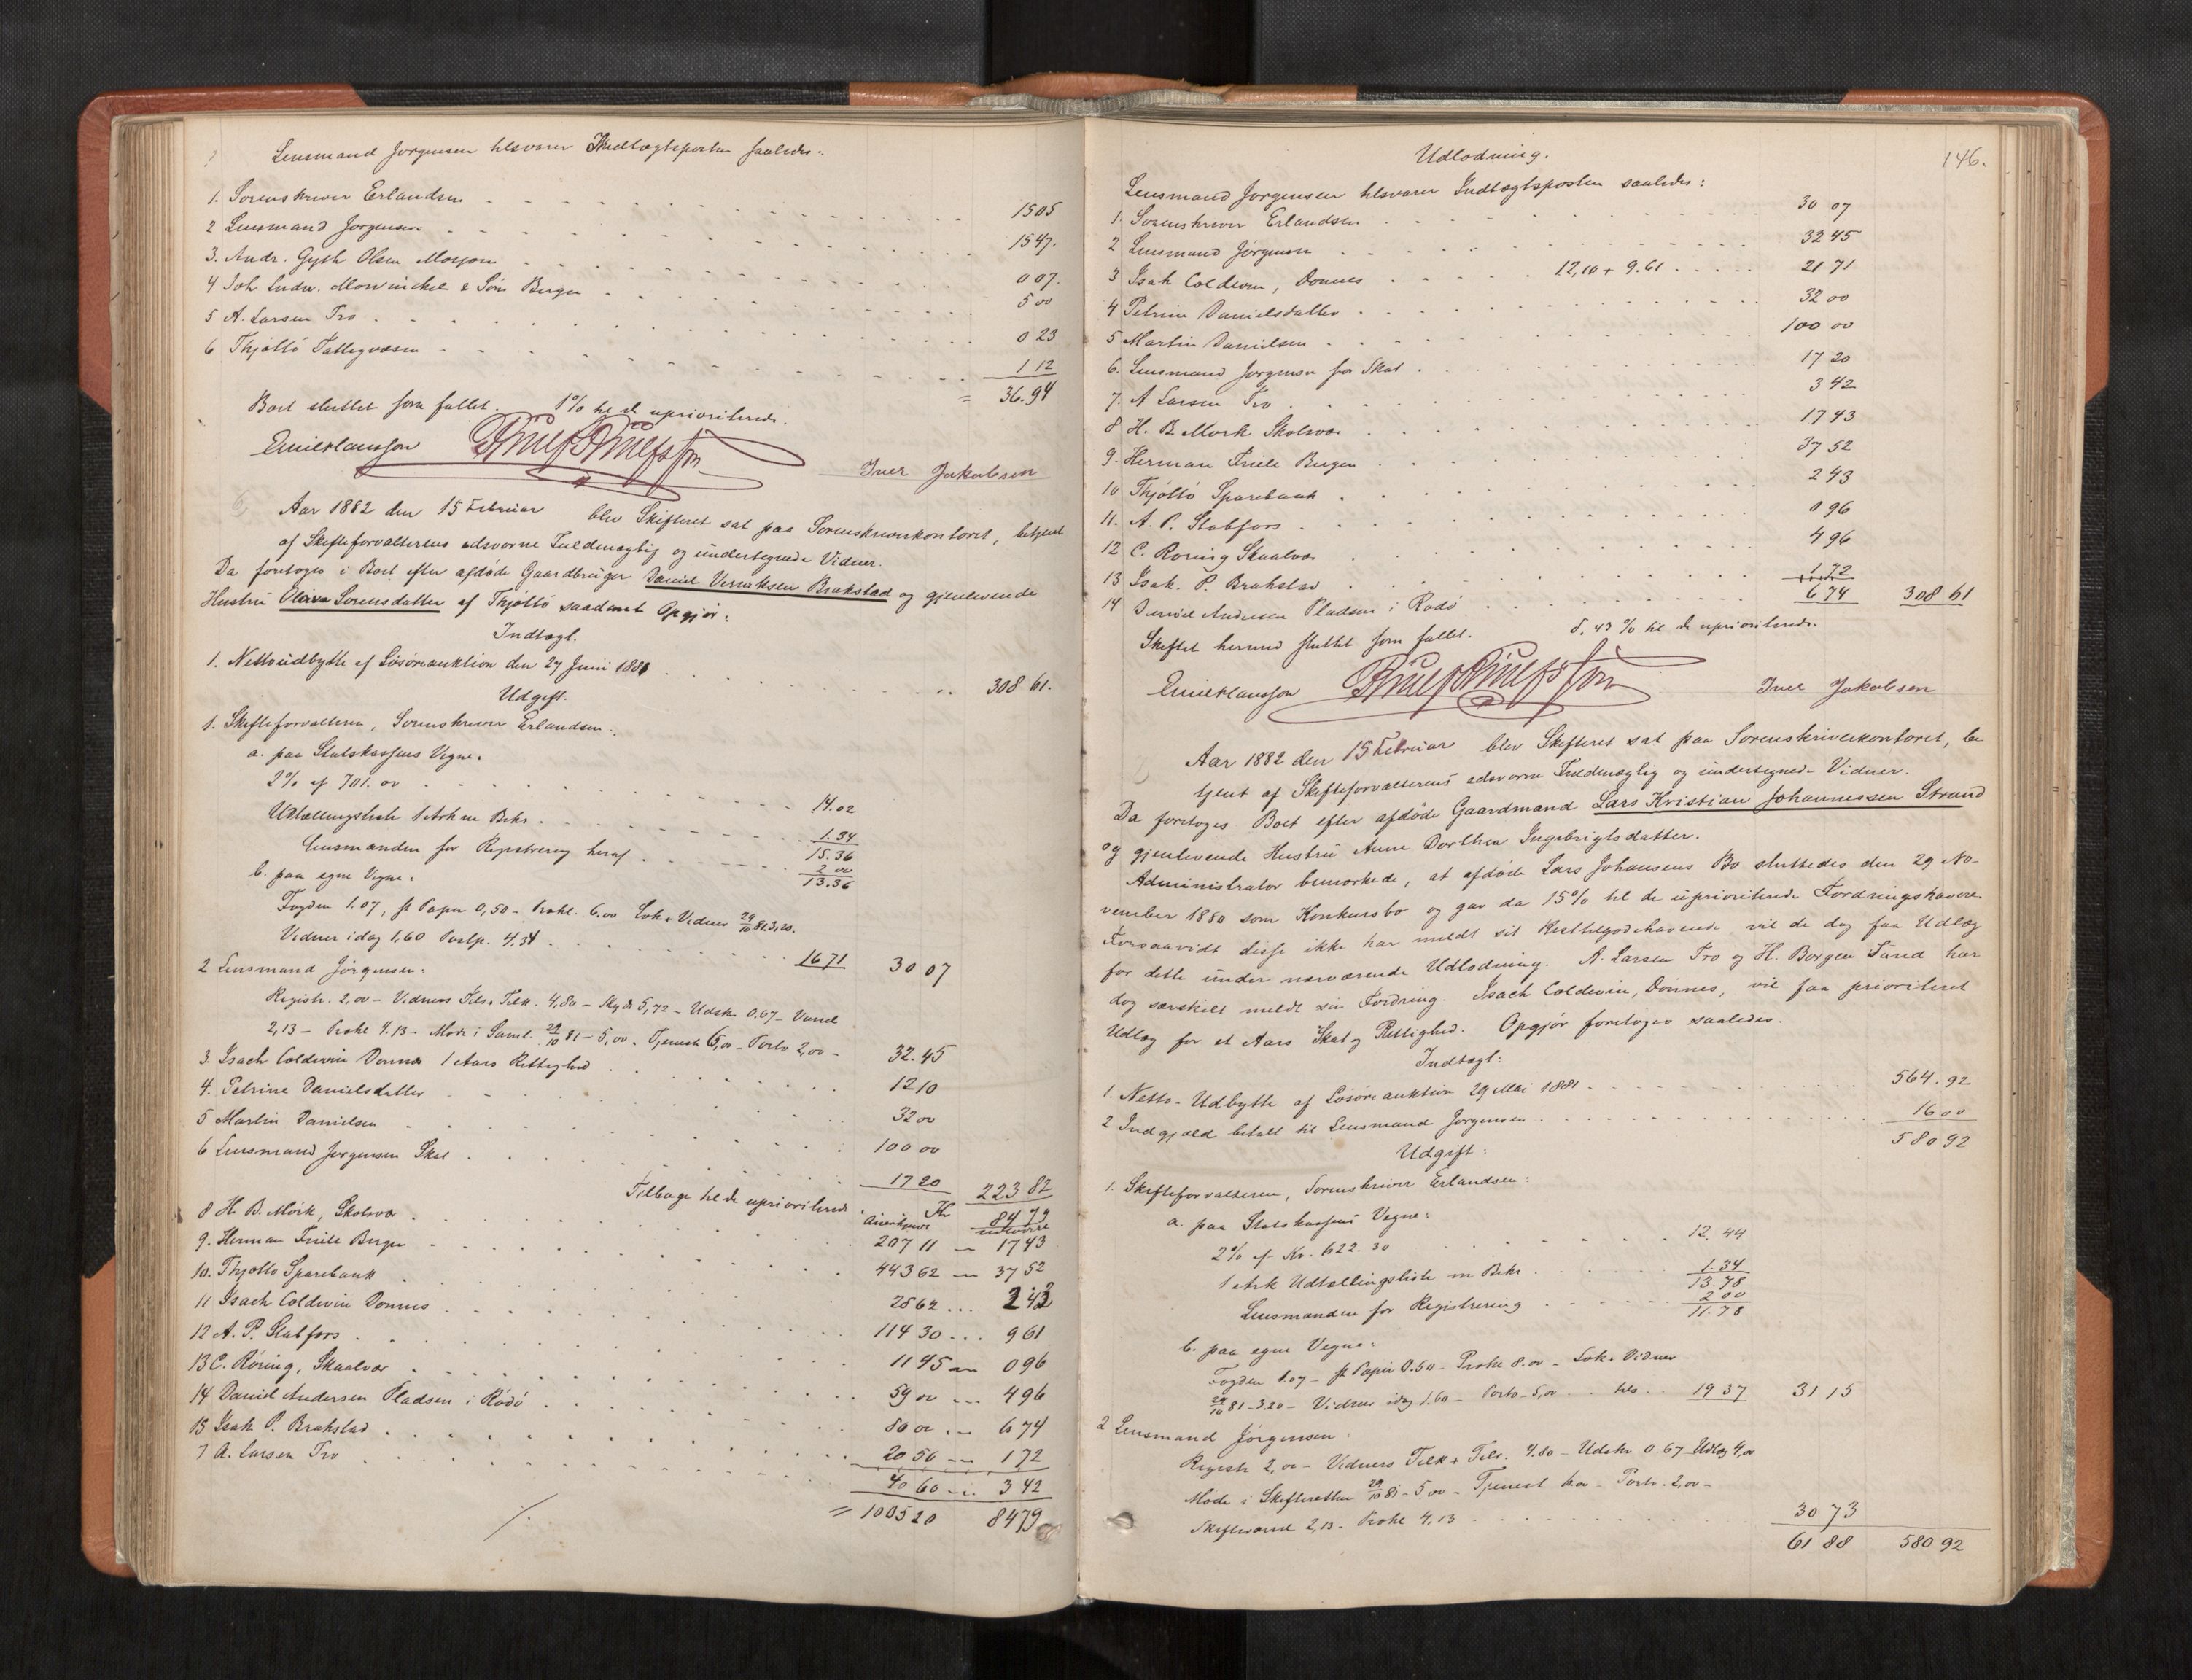 Lensmand Jørgensen tilsvarer Indtægtsposten saaledes:
1. Sorenskriver Erlandsen 15 05
2 Lensmand Jørgensen 15 47.
3. Andr. Gyth Olsen Mosjøen 0 07.
4 Joh. Ludw. Mowinckel & Søn Bergen 5 00
5 A. Larsen Tro 0 23
6 Thjøttø Fattigvæsen 1 12
= 36.94
Boet sluttet som fallet. 1% til de uprioriterede.
Iver Jakobsen
Aar 1882 den 15 Februar blev Skifteret sat paa Sorenskriverkontoret, betjent
af Skifteforvalterens edsvorne Fuldmægtig og undertegnede Vidner.
Da foretoges i Boet efter afdøde Gaardbruger Daniel Brakstad og gjenlevende
Hustru Sørensdatter af Thjøttø saadant Opgjør:
Indtægt.
1. Nettoudbytte af Løsøreauktion den 27 Juni 1881 308 61.
Udgift.
1. Skifteforvalteren, Sorenskriver Erlandsen:
a. paa Statskassens Vegne:
2% af 701.00 14.02
Udtællingsliste 1 Ark m Bekr. 1.34
15.36
Lensmanden for Registrering heraf 2 00
13.36
b. paa egne Vegne:
Fogden 1.07, st Papir 0,50 - Prokl. 6.00 Lok + Vidner 29/10 81 3,20.
Vidner idag 1,60 Porto 4.34 16 71 30 07
2 Lensmand Jørgensen:
Registr. 2,00 - Vidners Tils. Tilk. 4,80 - Skyds 5,72 - Udskr. 0.67 - Varsel
2,13 - Prokl 4.13 - Møde i Saml. 29/10 81 - 5,00. Tjeneste 6,00 - Porto 2,00 - 32.45
3. Isach Coldevin Dønnes 1 Aars Rettighed 12 10
4. Petrine Danielsdatter 32 00
5 Martin Danielsen 100 00
6 Lensmand Jørgensen Skat 17 20 223 82
Tilbage til de uprioriterede Kr 84 79
8 H. B. Mørk, Skolsvær 207 11 — 17 43
9. Herman Friele Bergen 443 62 — 37 52
10. Thjøttø Sparebank 28 62 ... 2 43
11 Isach Coldevin Dønnes 114 30 ... 9 61
12 A. P. Stabfors 11 45 — 0 96
13 C. Røring, Skaalvær 59 00 — 4 96
14 Daniel Andersen Pladsen i Rødø 80 00 — 6 74
15 Isak P. Brakstad 20 50 — 1 72
7 A. Larsen Tro 40 60 — 3 42
= 1005 20 84 79
146.
Udlodning.
Lensmand Jørgensen tilsvarer Indtægtsposten saaledes:
1. Sorenskriver Erlandsen 30 07
2 Lensmand Jørgensen 32 45
3 Isak Coldevin, Dønnes 12,10 + 9.61 21 71
4 Petrine Danielsdatter 32 00
5 Martin Danielsen 100 00
6. Lensmand Jørgensen for Skat 17 20
7. A Larsen Tro 3 42
8 H. B. Mørk Skolsvær 17 43
9. Herman Friele Bergen 37 52
10 Thjøttø Sparebank 2 43
11. A. P. Stabfors 0 96
12 C. Røring Skaalvær 4 96
13 Isak. P. Brakstad 1.72
14 Daniel Andersen Pladsen i Rødø 6 74 308 61
Skiftet hermed sluttet som fallet. 8,43 % til de uprioriterede.
Iver Jakobsen
Aar 1882 den 15 Februar blev Skifteret sat paa Sorenskriverkontoret, be
tjent af Skifteforvalterens edsvorne Fuldmægtig og undertegnede Vidner.
Da foretoges Boet efter afdøde Gaardmand Lars Kristian Johannessen Strand
og gjenlevende Hustru Anne Dorthea Ingebrigtsdatter.
Administrator bemærkede, at afdøde Lars Johansens Bo sluttedes den 29 No-
vember 1880 som Konkursbo og gav da 15% til de uprioriterede Fordringshavere.
Forsaavidt disse ikke har meldt sit Resttilgodehavende vil de dog faa Udlæg
for dette under nærværende Udlodning. A. Larsen Tro og H. Borgen Sund har
dog særskilt meldt sin Fordring. Isach Coldevin, Dønnes, vil faa prioriteret
Udlæg for et Aars Skat og Rettighed. Opgjør foretoges saaledes.
Indtægt:
1. Netto-Udbytte af Løsøreauktion 29 Mai 1881 564.92
2 Indgjæld betalt til Lensmand Jørgensen 16 00
580 92
Udgift:
1. Skifteforvalteren, Sorenskriver Erlandsen:
a. paa Statskassens Vegne:
2% af Kr. 622.30 12.44
1 Ark Udtællingsliste m Bekr. 1.34
13.78
Lensmanden for Registrering 2 00
11.78
b. paa egne Vegne:
Fogden 1.07 - st Papir 0.50 - Prokl 8.00 - Lok. Vidner
29/10 81 - 3.20 - Vidner idag 1.60 - Porto - 5,00 tils. 19 37 31 15
2 Lensmand Jørgensen:
Registr 2,00 - Vidners Tilk + Tils. 4.80 - Udskr 0.67 Udlæg 4,00
Møde i Skifteretten 29/10 81 - 5 00 - Tjenest 6.00 - Porto. 2,00 -
Skiftevarsel 2,13 - Prokl 4,13 30 73
61 88 580 92